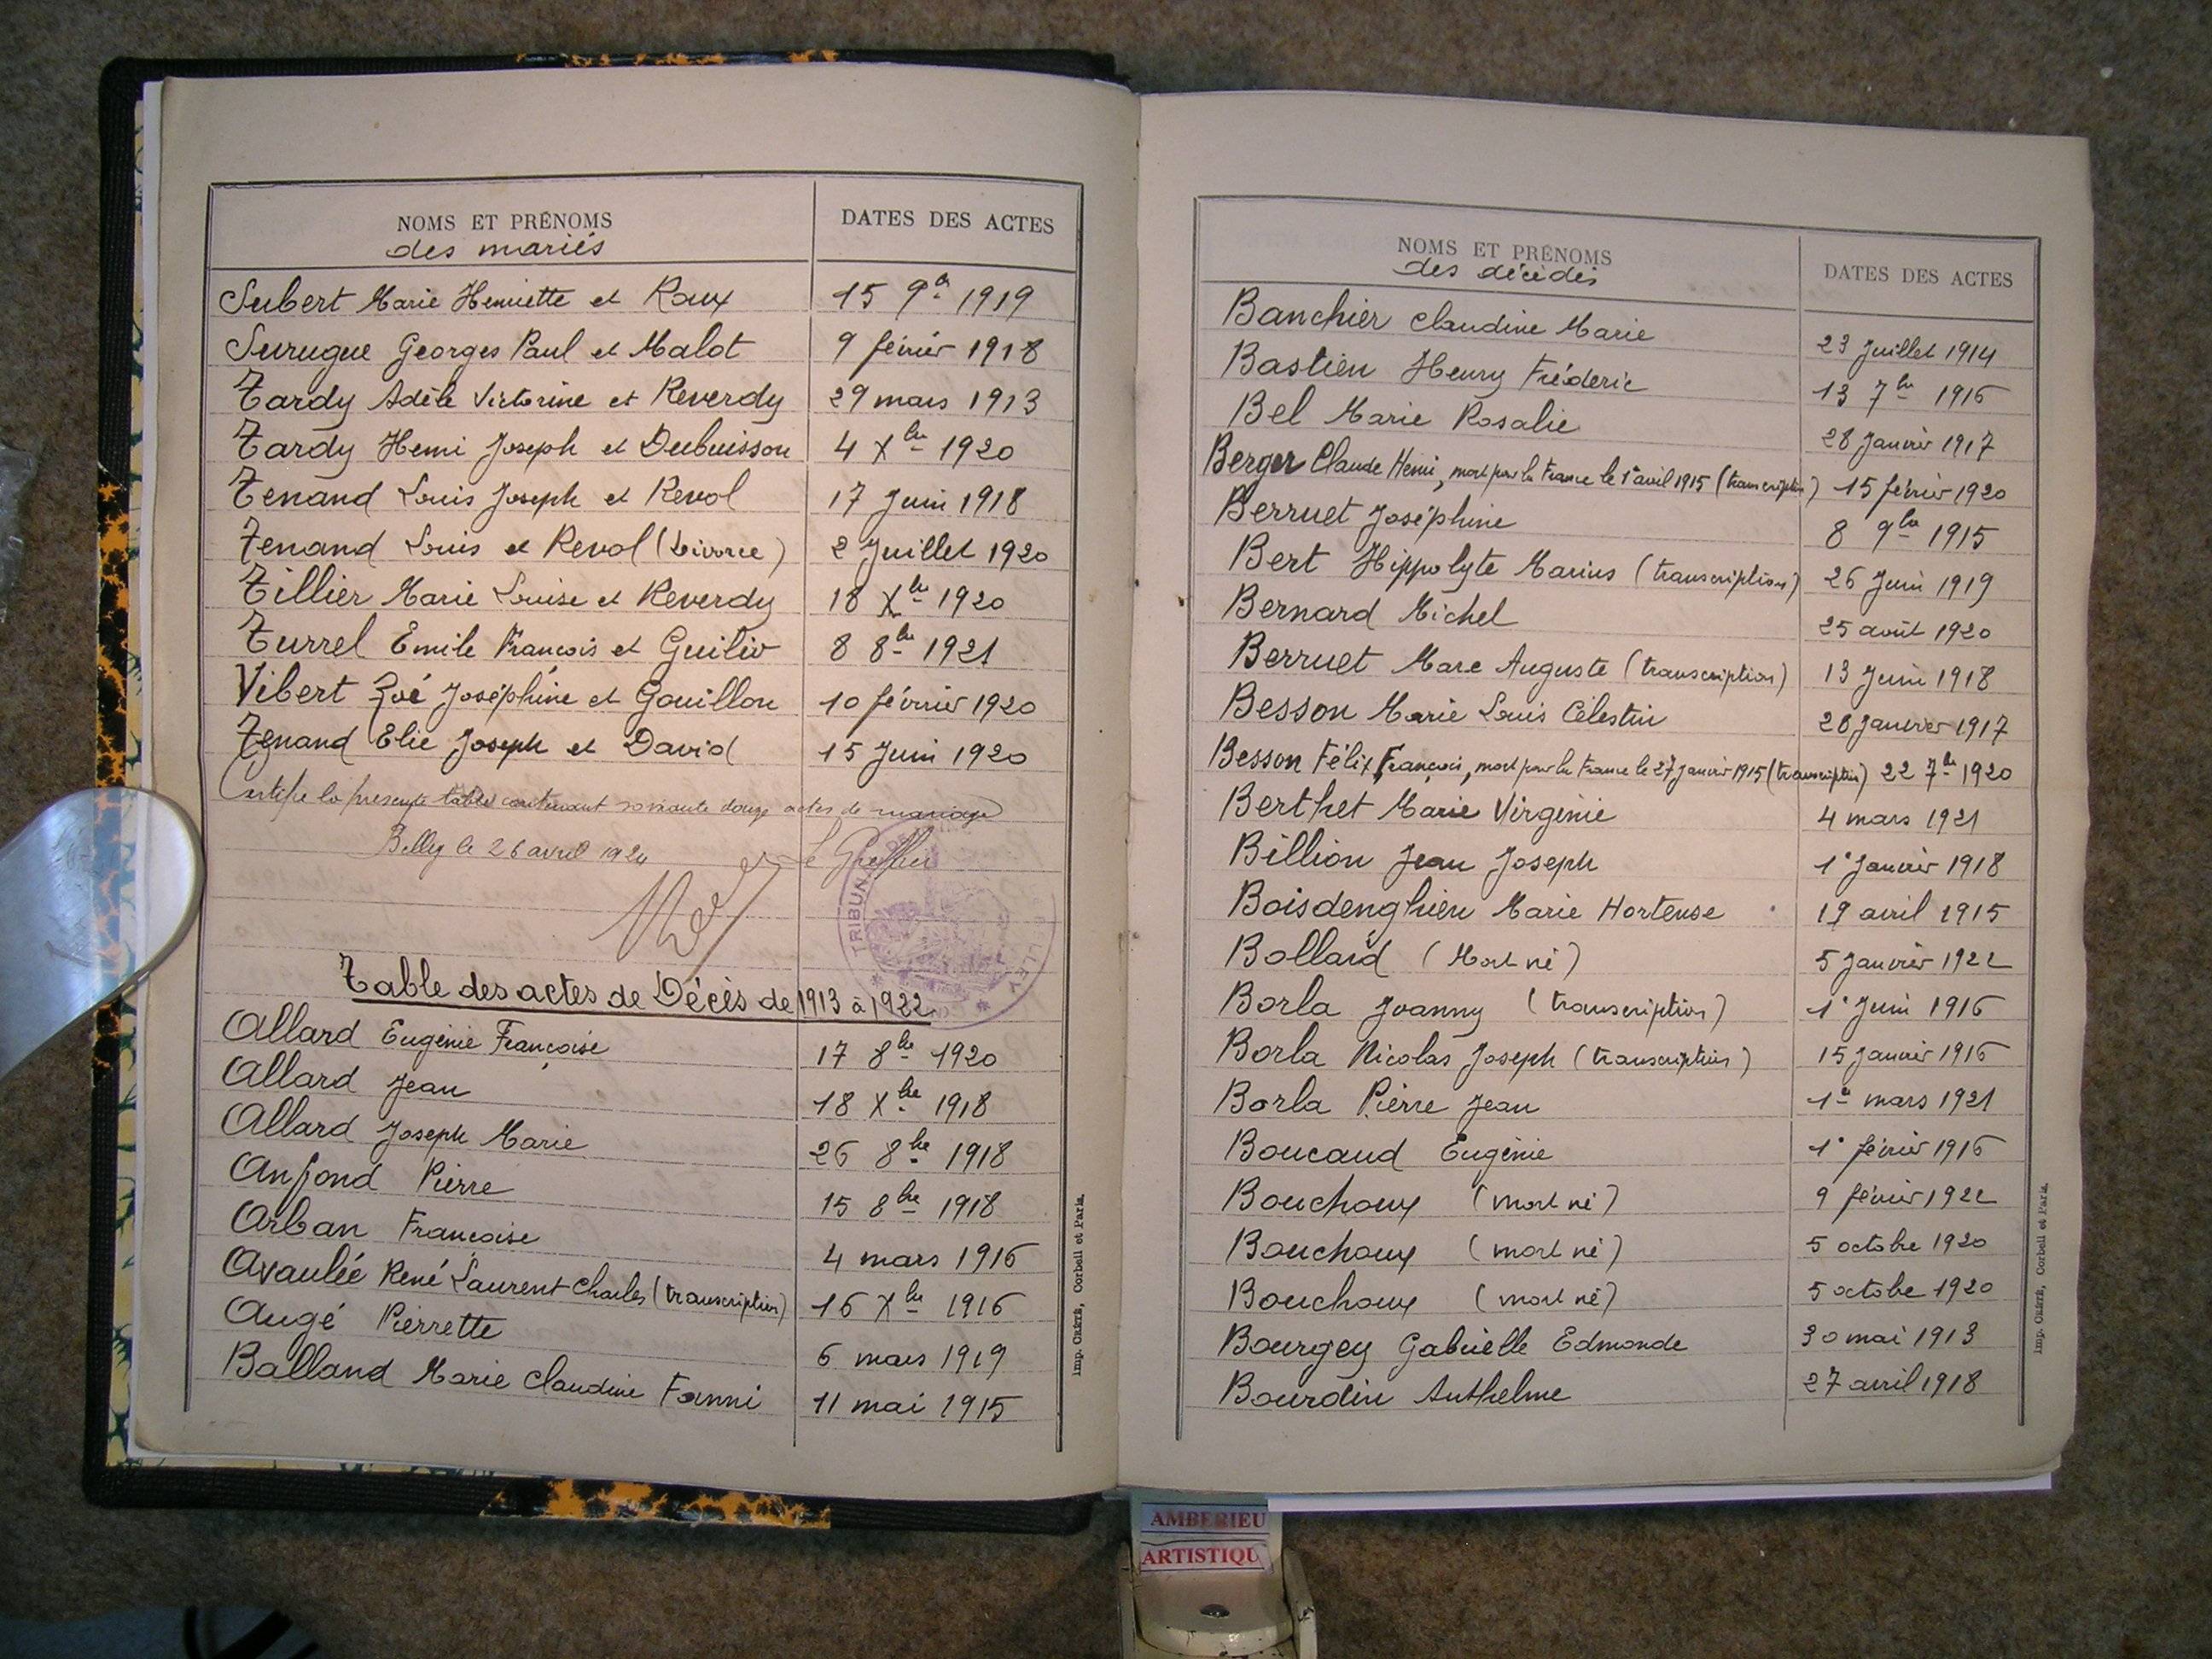 NOMS ET PRÉNOMS
des mariés
DATES DES ACTES
Subert Marie Henriette et Roux 15 9bre 1919
Surugue Georges Paul et Malot 9 février 1918
Tardy Adèle Victorine et Reverdy 29 mars 1913
Tardy Henri Joseph et Dubuisson 4 Xbre 1920
Tenand Louis Joseph et Revol 17 Juin 1918
Tenand Louis et Revol (Divorce) 2 Juillet 1920
Tillier Marie Louise et Reverdy 18 Xbre 1920
Turrel Emile François et Guiliv 8 8bre 1921
Vibert Zoé Joséphine et Gouillon 10 février 1920
Tenand Elie Joseph et David 15 Juin 1920
Certifié la présente table contenant soixante douze actes de mariage
Belley le 26 avril 1924 Le Greffier
TRIBUNAL BELLEY
Table des actes de Décès de 1913 à 1922
Allard Eugénie Françoise 17 8bre 1920
Allard Jean 18 Xbre 1918
Allard Joseph Marie 26 8bre 1918
Anfond Pierre 15 8bre 1918
Arban Françoise 4 mars 1916
Avaulée René Laurent Charles (transcription) 16 Xbre 1916
Augé Pierrette 6 mars 1919
Balland Marie Claudine Fanni 11 mai 1915
Imp. CRÉTÉ, Corbeil et Paris.
NOMS ET PRÉNOMS
des décédés
DATES DES ACTES
Banchier Claudine Marie 23 Juillet 1914
Bastien Henry Fréderic 13 7bre 1916
Bel Marie Rosalie 28 Janvier 1917
Berger Claude Henri, mort pour la France le 1er avril 1915 (transcription) 15 février 1920
Berruet Joséphine 8 9bre 1915
Bert Hippolyte Marius (transcription) 26 Juin 1919
Bernard Michel 25 août 1920
Berruet Marc Auguste (transcription) 13 Juin 1918
Besson Marie Louis Célestin 28 Janvier 1917
Besson Félix François, mort pour la France le 27 Janvier 1915 (transcription) 22 7bre 1920
Berthet Marie Virginie 4 mars 1921
Billion Jean Joseph 1er Janvier 1918
Boisdenghien Marie Hortense 19 avril 1915
Bollard (Mort né) 5 Janvier 1922
Borla Joanny (transcription) 1er Juin 1916
Borla Nicolas Joseph (transcription) 15 Janvier 1916
Borla Pierre Jean 1er mars 1921
Boucaud Eugénie 1er février 1916
Bouchoux (mort né) 9 février 1922
Bouchoux (mort né) 5 octobre 1920
Bouchoux (mort né) 5 octobre 1920
Bourgey Gabrielle Edmonde 30 mai 1913
Bourdin Anthelme 27 avril 1918
Imp. CRÉTÉ, Corbeil et Paris.
AMBERIEU
ARTISTIQU